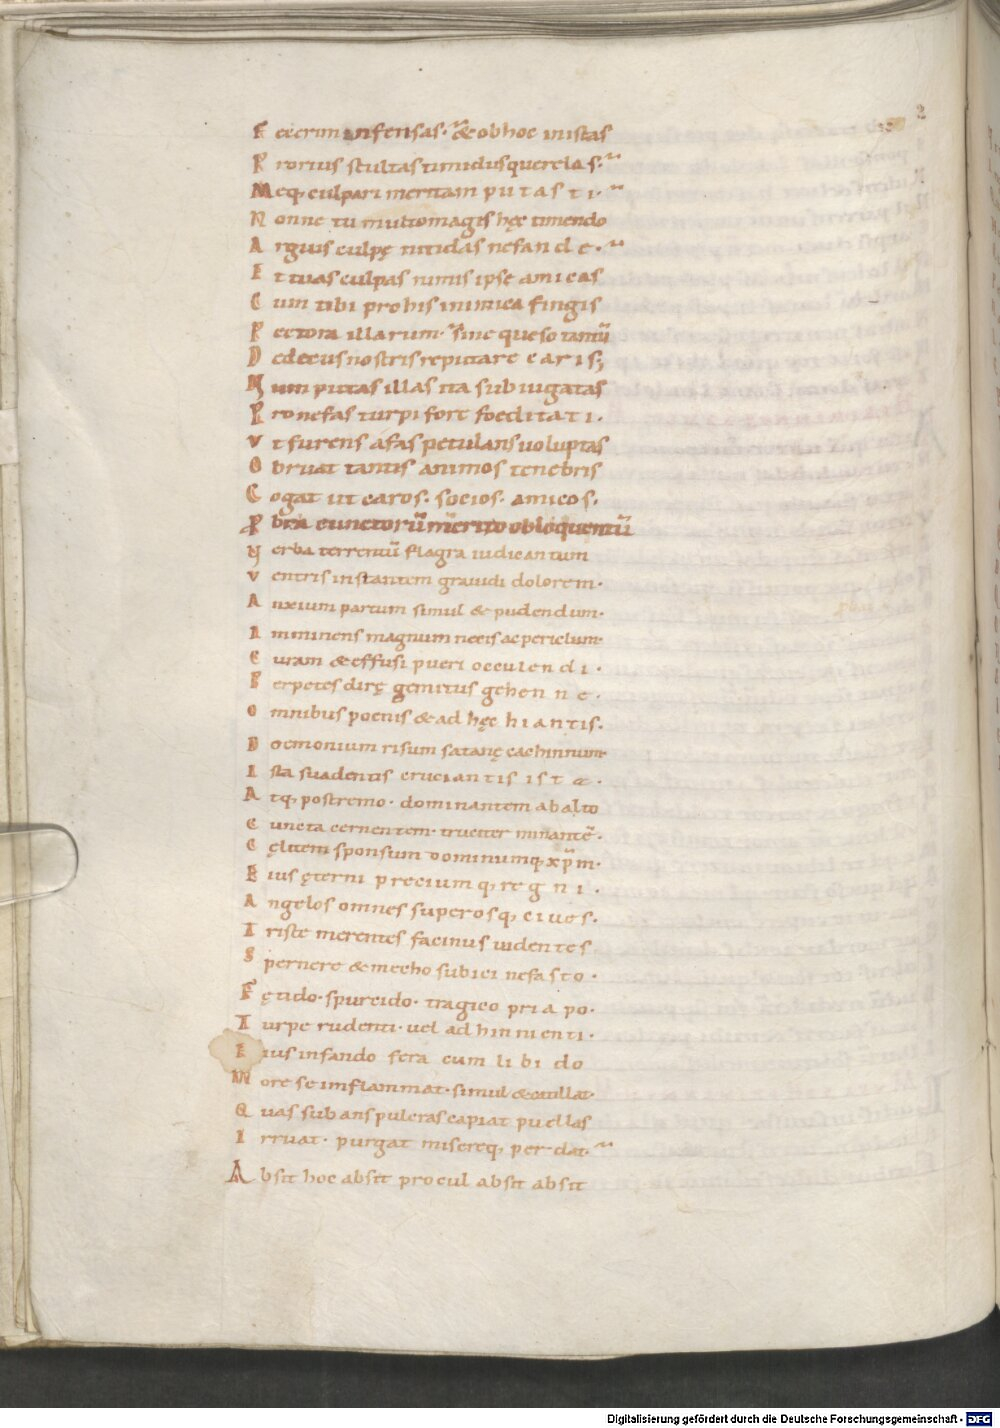 2
Fecerim infensas. & ob hoc inistas
Prorius stultas timidus querelas.
Meq; culpari meritam putasti.
Nonne tu multo magis hęc timendo
Arguis culpę nitidas nefande.
Et tuas culpas nimis ipse amicas
Cum tibi probis inimica fingis
Pectora illarum. Sine queso tantū
Dedecus nostris repuitare caris;
Num putas illas ita subiugatas
Pro nefas turpi fore foeditati.
Vt furens afas petulans voluptas
Obruat tantis animos tenebris
Cogat ut caros. socios. amicos.
cunctorū merito obloquentū
Verba terrentū flagra iudicantum
Ventris instantem grauidi dolorem.
Anxium partum simul & pudendum.
Imminens magnum necis ac periclum.
Curam & effusi pueri occulendi.
Perpetes dirę gemitus gehenne.
Omnibus poenis & ad hęc hiantis.
Doemonium risum satanę cachinnum
Ista suadentis cruciantis ista.
Atq; postremo. dominantem ab alto
Cuncta cernentem. truciter minantē.
Cęlitem sponsum dominumq; xp̄m.
Eius ęterni precium q; regni.
Angelos omnes superosq; ciues.
Triste merentes facinus uidentes
Spernere & mecho subici nefasto.
Fętido. spurcido. tragico priapo.
Turpe rudenti. uel ad hinnienti.
Eius infando fera cum libido
More se inflammat. simul & catillat.
Quas subans pulcras capiat puellas
Irruat. purgat misereq; perdat.
Absit hoc absit procul absit absit
Digitalisierung gefördert durch die Deutsche Forschungsgemeinschaft - DFG